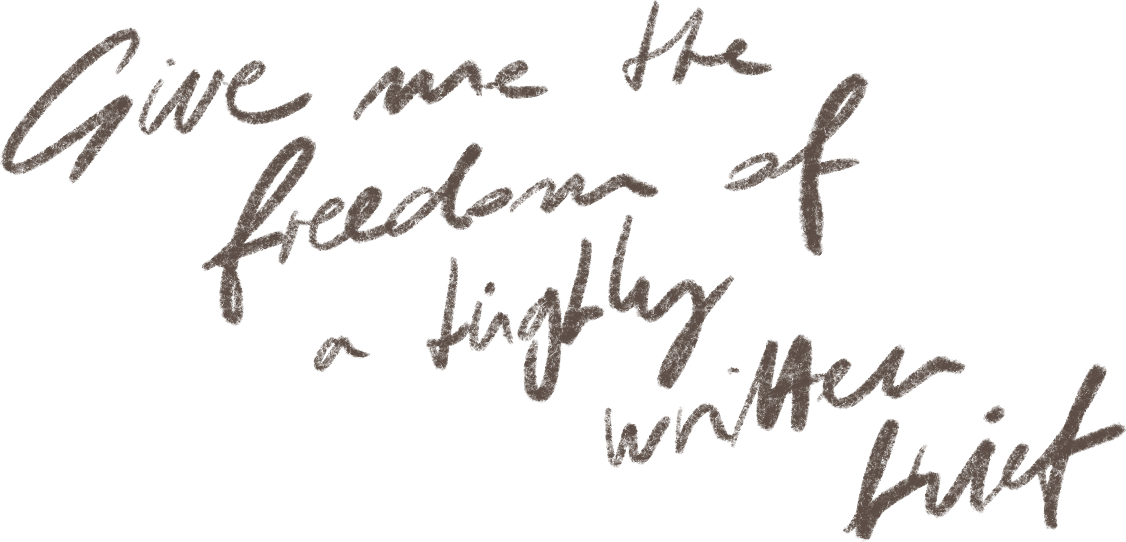 Give me the
freedom of
a tightly
written
brief